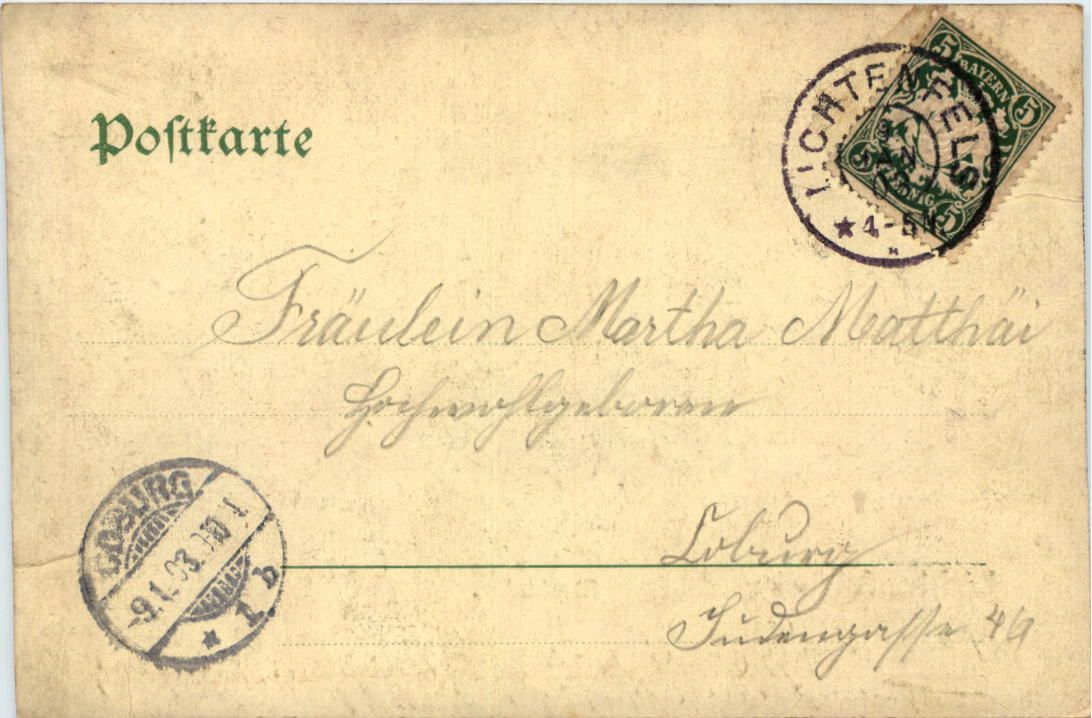 Postkarte
5 BAYERN 5
LICHTENFELS
4-5N
5 PFENNIG 5
Fräulein Martha Matthäi
Hochwohlgeboren
COBURG
-9.1.03.
1 b
Coburg
Judengasse